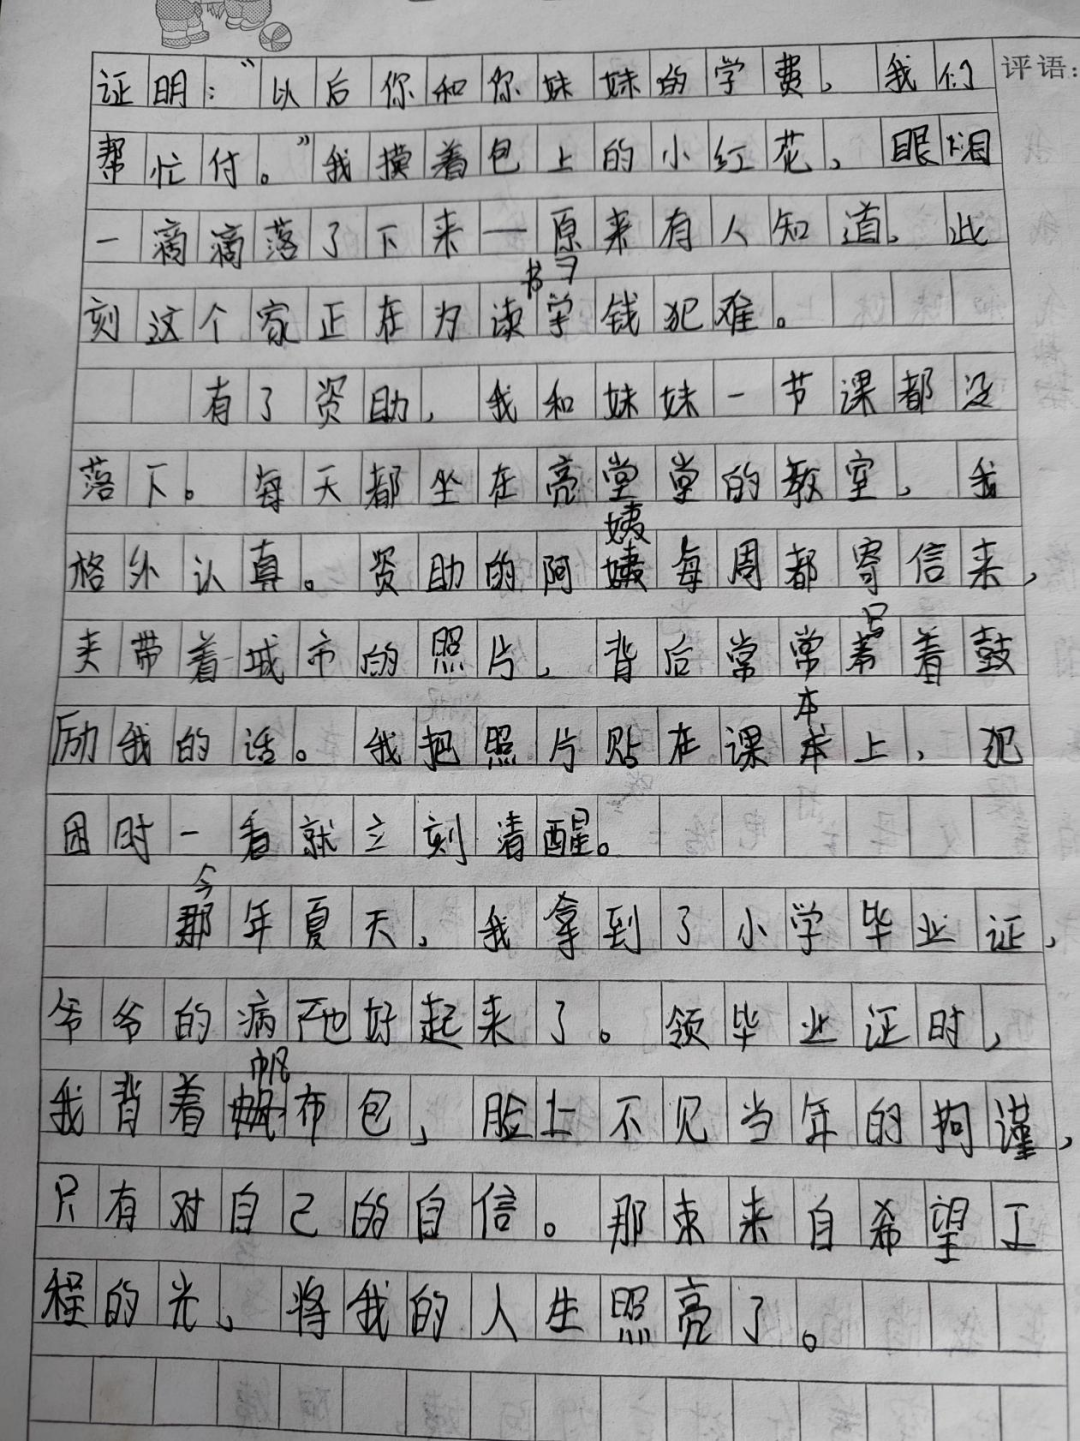 证明:“以后你和你妹妹的学费,我们
评语:
帮忙付。”我摸着包上的小红花,眼泪
一滴滴落了下来—原来有人知道,此
刻这个家正在为读书学钱犯难。
有了资助,我和妹妹一节课都没
落下。每天都坐在亮堂堂的教室,我
格外认真。资助的阿姨每周都寄信来,
夹带着城市的照片,背后常常写着鼓
励我的话。我把照片贴在课本上,犯
困时一看就立刻清醒。
今年夏天,我拿到了小学毕业证,
爷爷的病也好起来了。领毕业证时,
我背着帆布包,脸上不见当年的拘谨,
只有对自己的自信。那束来自希望工
程的光,将我的人生照亮了。